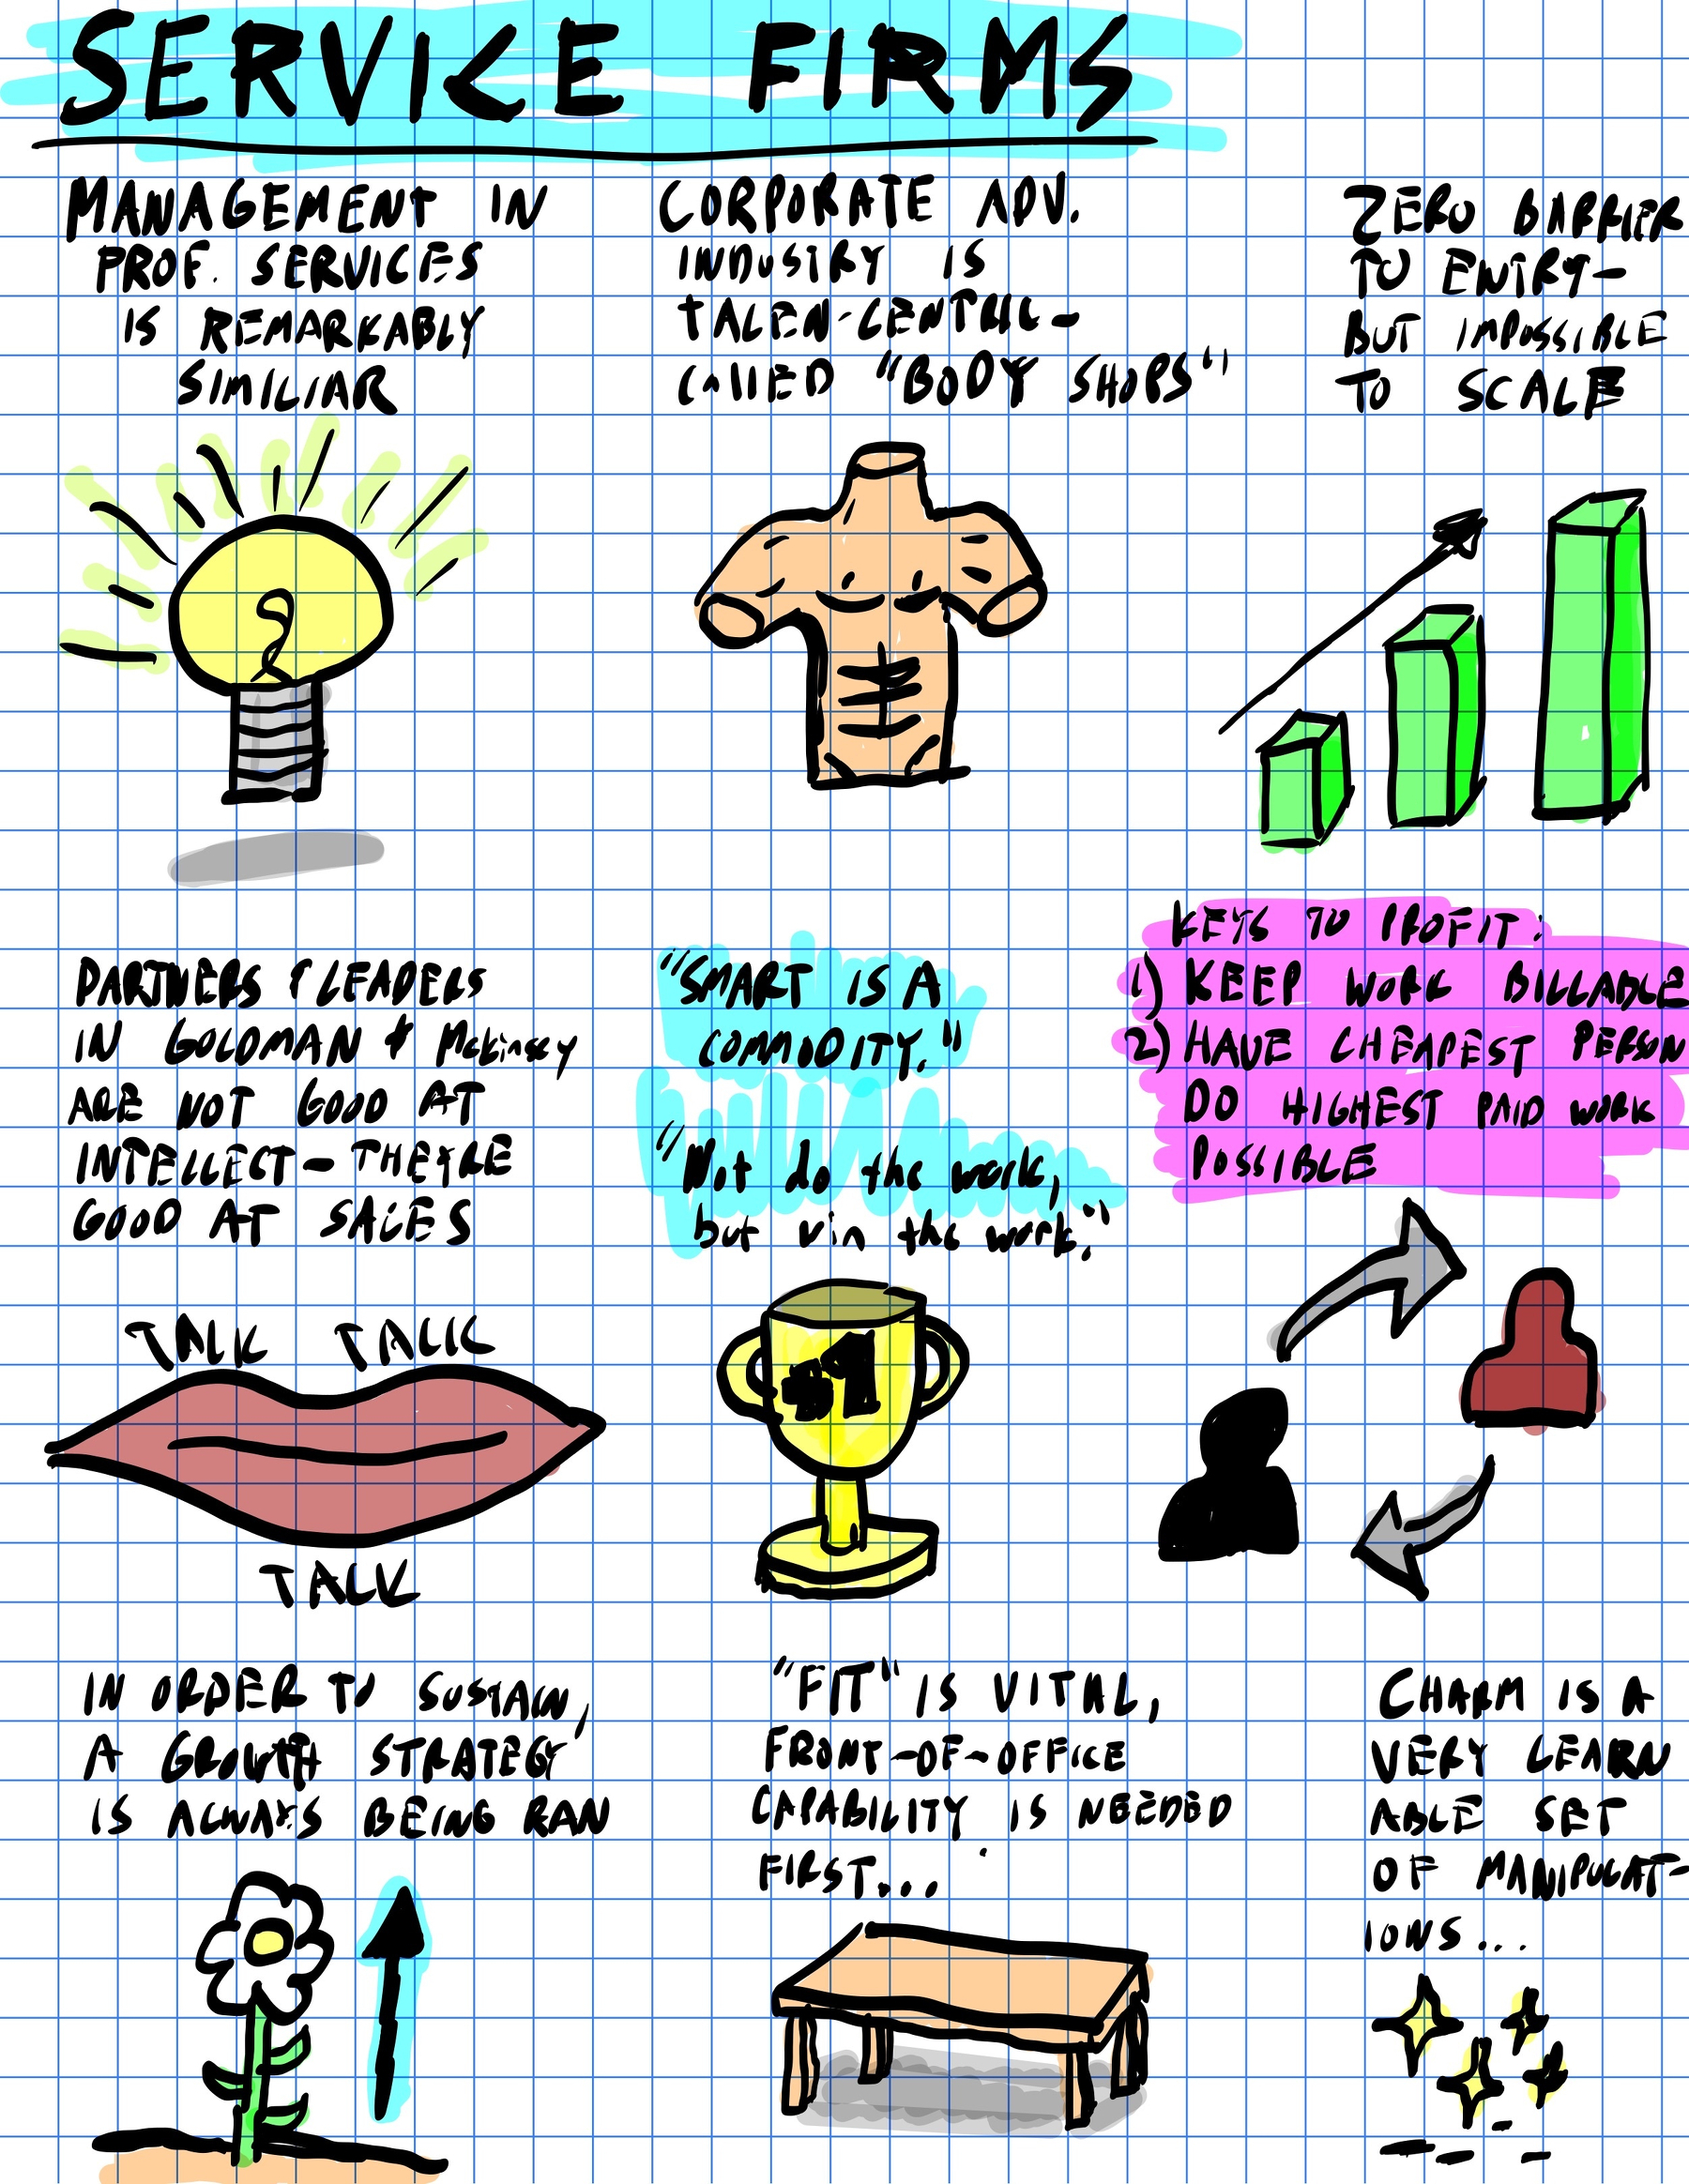 SERVICE FIRMS
MANAGEMENT IN
PROF. SERVICES
IS REMARKABLY
SIMILIAR
CORPORATE ADV.
INDUSTRY IS
TALEN-CENTRIC-
CALLED "BODY SHOPS"
ZERO BARRIER
TO ENTRY-
BUT IMPOSSIBLE
TO SCALE
PARTNERS & LEADERS
IN GOLDMAN & Mckinsey
ARE NOT GOOD AT
INTELLECT- THEYRE
GOOD AT SALES
TALK TALK
TALK
"SMART IS A
COMMODITY."
"Not do the work,
but win the work."
#1
KEYS TO PROFIT:
1) KEEP WORK BILLABLE
2) HAVE CHEAPEST PERSON
DO HIGHEST PAID WORK
POSSIBLE
IN ORDER TO SUSTAIN,
A GROWTH STRATEGY
IS ALWAYS BEING RAN
"FIT" IS VITAL,
FRONT-OF-OFFICE
CAPABILITY IS NEEDED
FIRST...
CHARM IS A
VERY LEARN
ABLE SET
OF MANIPULAT-
IONS...